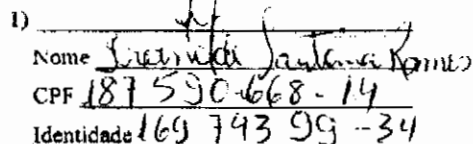 1)
Nome Santana Ramos
CPF 187 590.668-14
Identidade 169 743 99-34